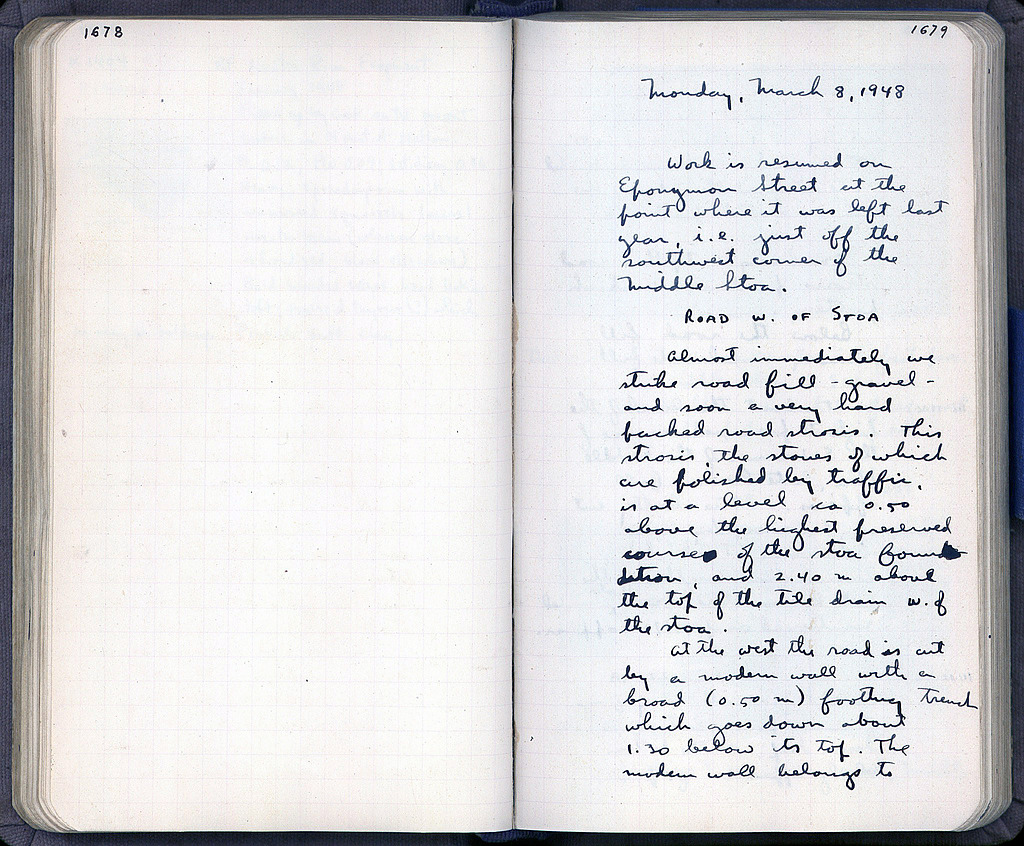 1678
1679
Monday, March 8, 1948
Work is resumed on
Eponymon Street at the
point where it was left last
year, i.e. just off the
southwest corner of the
Middle Stoa.
ROAD W. OF STOA
Almost immediately we
strike road fill - gravel -
and soon a very hard
packed road strosis. This
strosis, the stones of which
are polished by traffic,
is at a level ca 0.50
above the highest preserved
course of the stoa founda-
dation, and 2.40 m above
the top of the tile drain w. of
the stoa.
At the west the road is cut
by a modern wall with a
broad (0.50 m) footing trench
which goes down about
1.30 below its top. The
modern wall belongs to